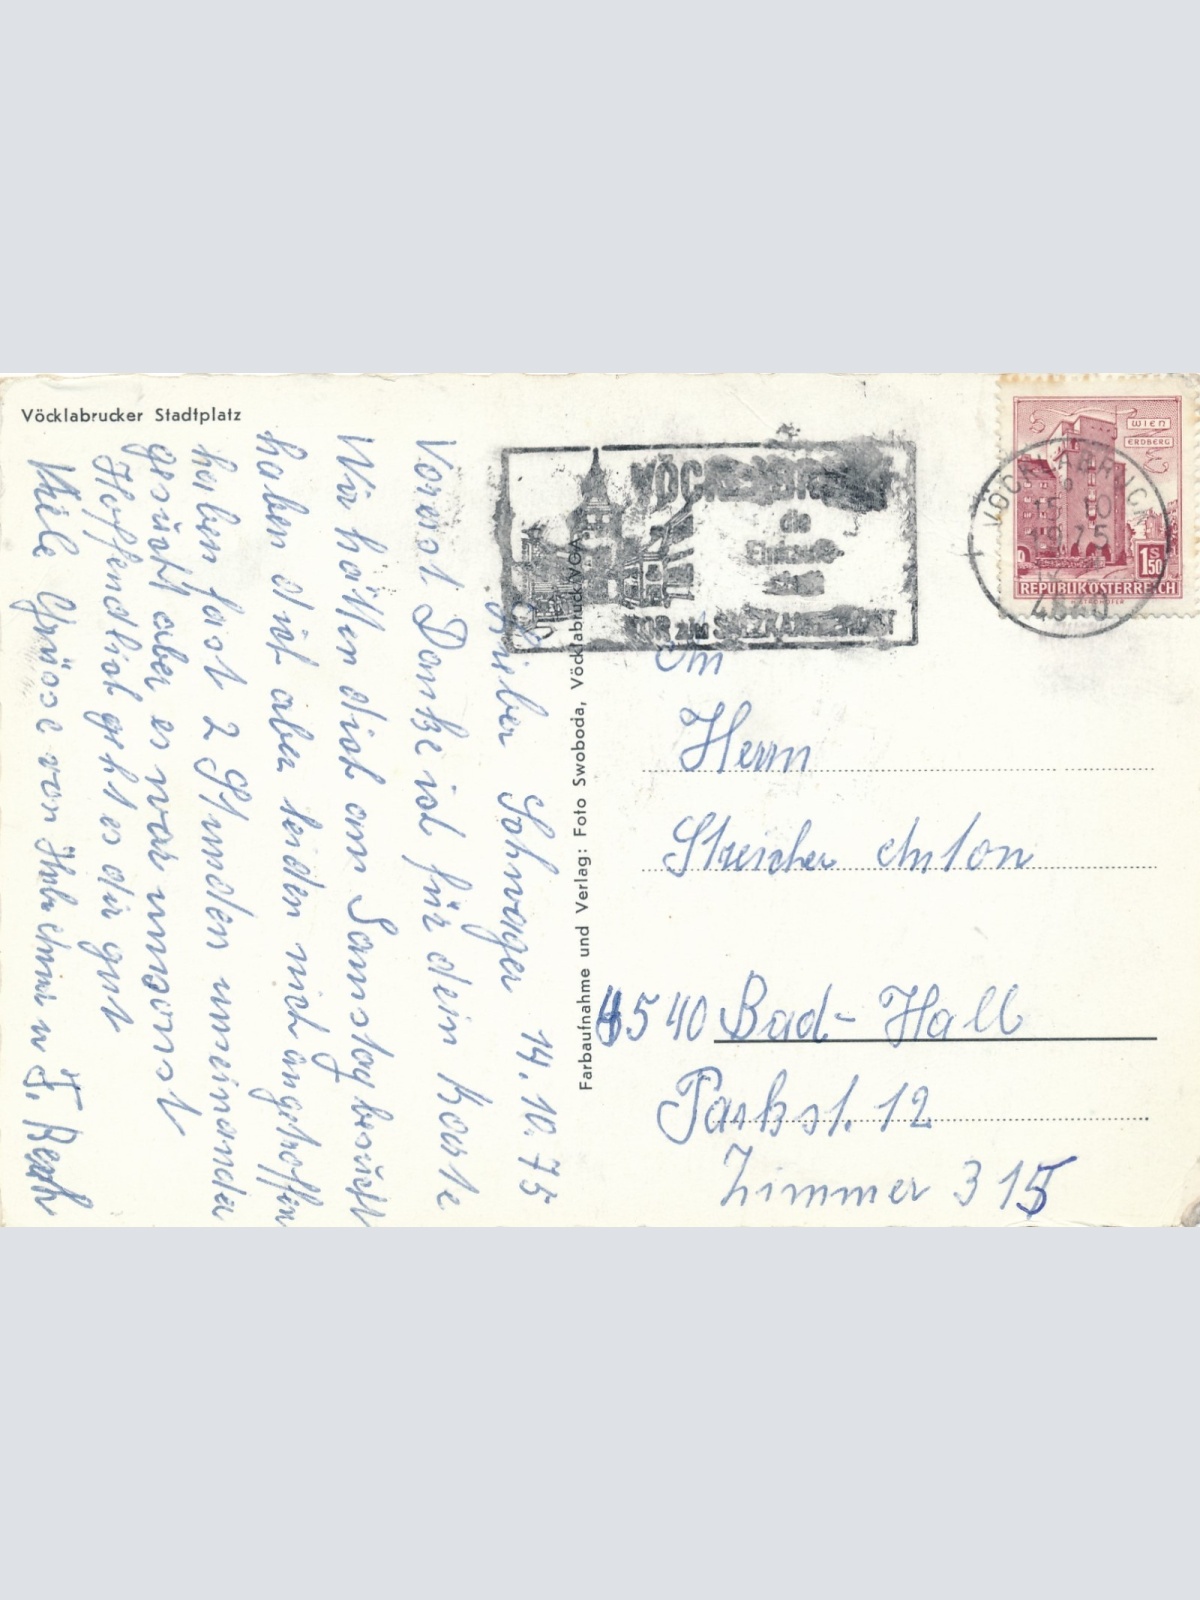 Vöcklabrucker Stadtplatz
Lieber Schwager 14.10.75
Vorerst Danke ich für dein Karte
Wir hätten dich am Samstag besucht
haben dich aber leider nich angetroffen
haben fast 2 Stunden umeinander
gesucht aber es war umsonst
Hoffendlich geht es dir gut
Viele Grüsse von
Farbaufnahme und Verlag: Foto Swoboda, Vöcklabruck VOA
VÖCKLABRUCK
die
Einkaufs-
stadt
TOR zum SALZKAMMERGUT
WIEN
ERDBERG
S
1.50
REPUBLIK ÖSTERREICH
VÖCKLABRUCK
15.10
1975
An
Herrn
Streicher Anton
4540 Bad-Hall
Parkst. 12
Zimmer 315